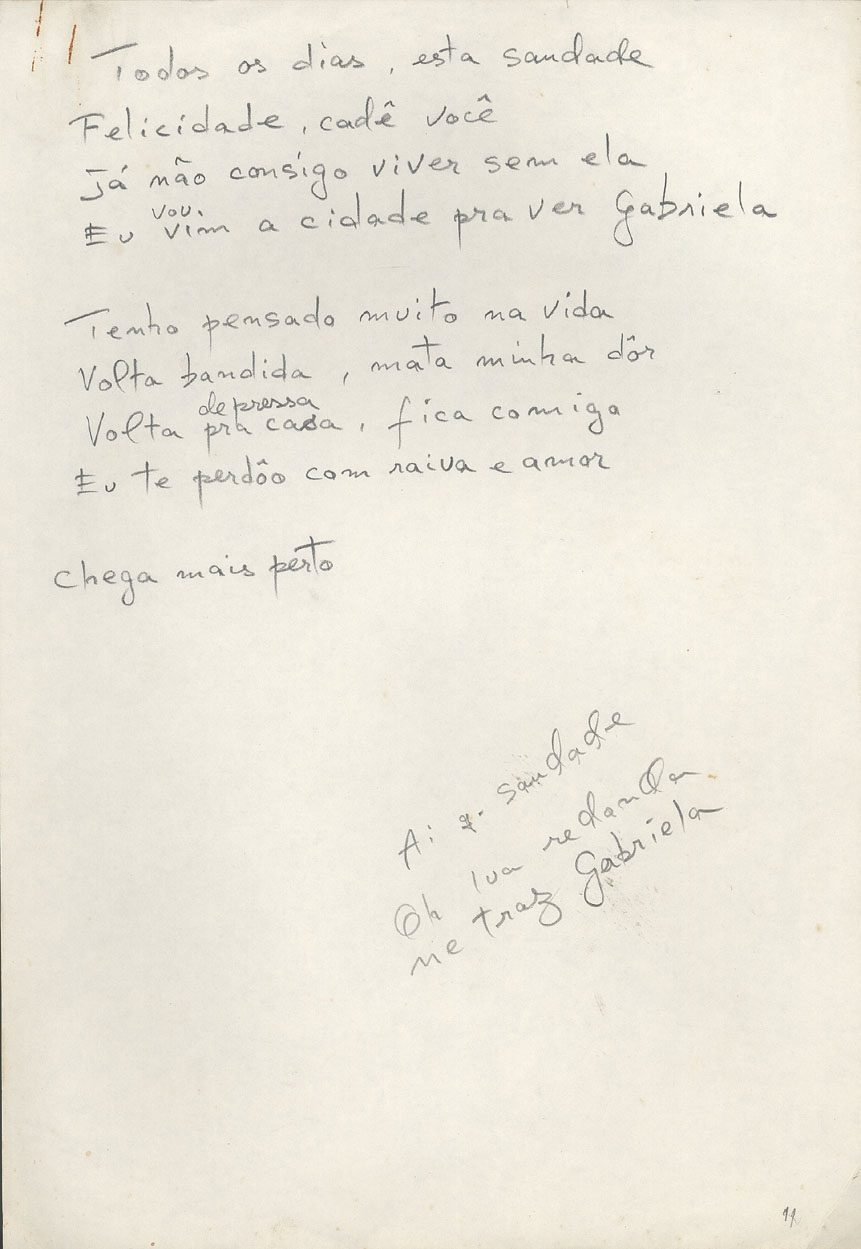 Todos os dias, esta saudade
Felicidade, cadê você
Já não consigo viver sem ela
vou.
Eu vim a cidade pra ver Gabriela
Tenho pensado muito na vida
Volta bandida, mata minha dôr
depressa
Volta pra casa, fica comigo
Eu te perdôo com raiva e amor
Chega mais perto
Ai q. saudade
Oh lua redonda
me traz Gabriela
11